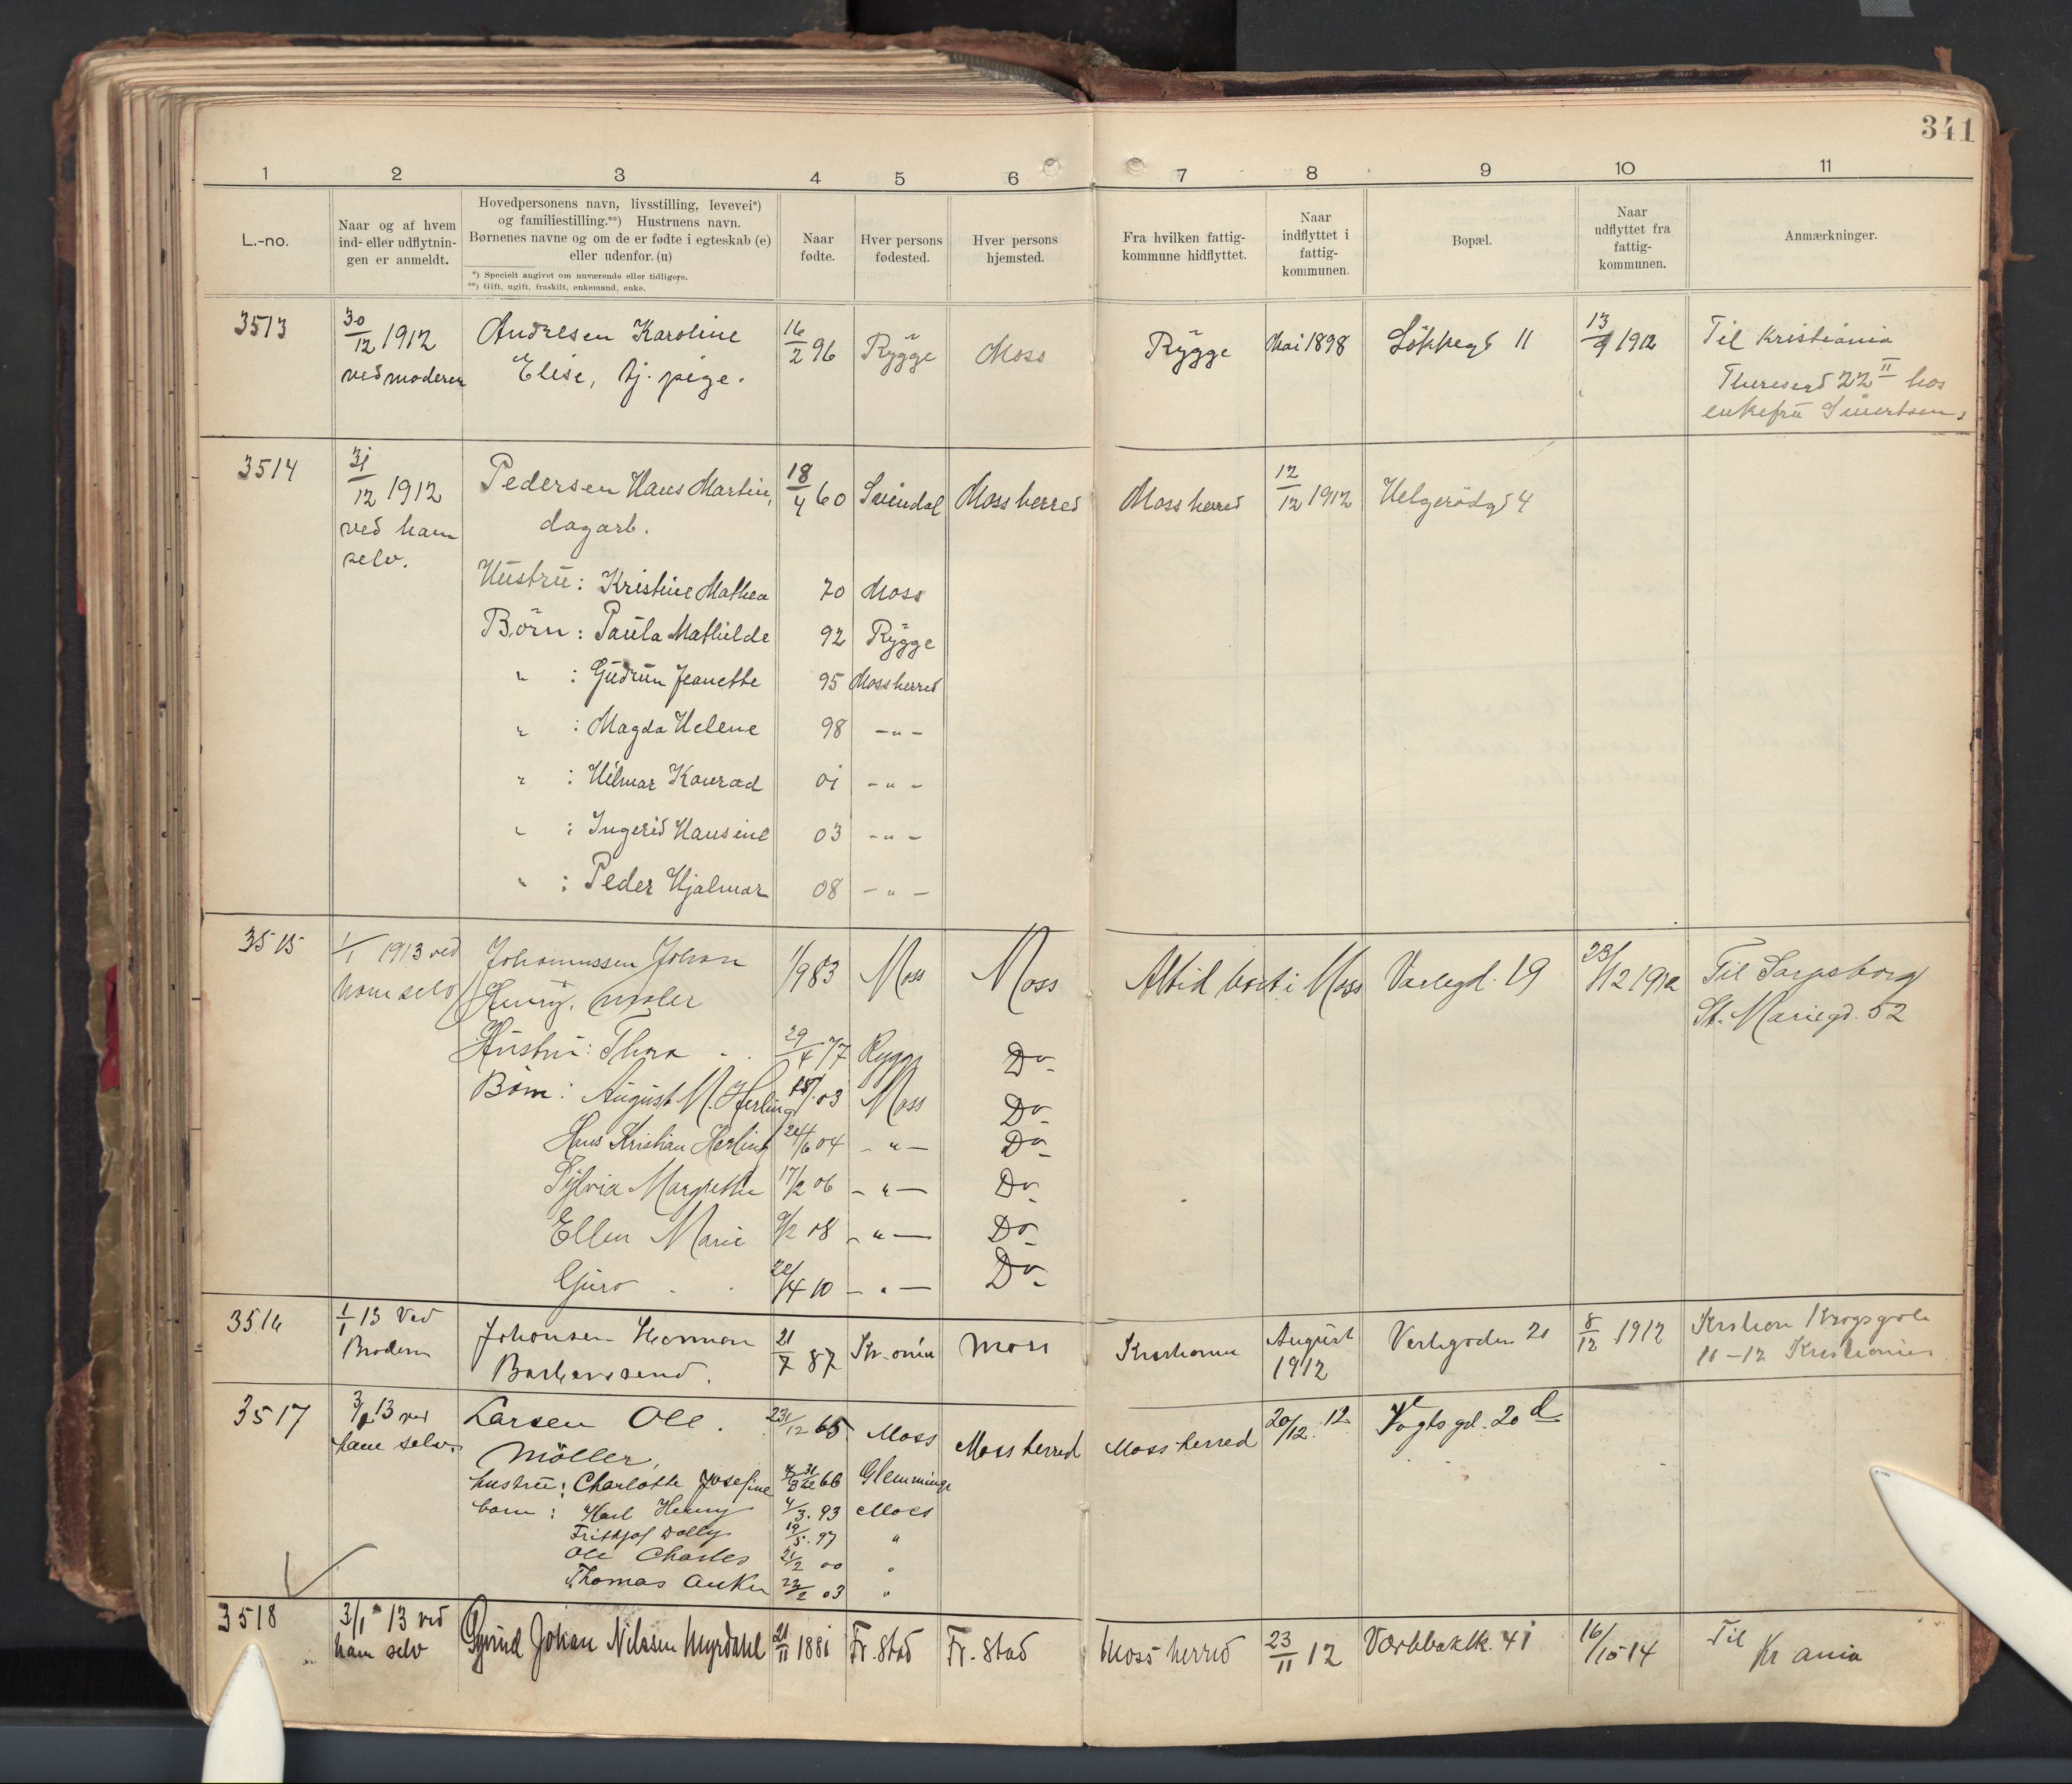 341
1 2 3 4 5 6 7 8 9 10 11
L.-no.
Naar og af hvem
ind- eller udflytnin-
gen er anmeldt.
Hovedpersonens navn, livsstilling, levevei*)
og familiestilling.**) Hustruens navn.
Børnenes navne og om de er fødte i egteskab (e)
eller udenfor. (u)
*) Specielt angivet om nuværende eller tidligere.
**) Gift, ugift, fraskilt, enkemand, enke.
Naar
fødte.
Hver persons
fødested.
Hver persons
hjemsted.
Fra hvilken fattig-
kommune hidflyttet.
Naar
indflyttet i
fattig-
kommunen.
Bopæl.
Naar
udflyttet fra
fattig-
kommunen.
Anmærkninger.
3513 30/12 1912 Andresen Karoline 16/2 96 Rygge Moss Rygge Mai 1898 11 13/9 1912 Til Kristiania
ved moderen Elise, tj. pige. Theresesg 22 II hos
enkefru Sivertsen
3514 31/12 1912 Pedersen Hans Martin, 18/4 60 Svindal Moss herred Moss herred 12/12 1912 Helgerödgd 4
ved ham dagarb.
selv.
Hustru: Kristine Mathea 70 Moss
Börn: Paula Mathilde 92 Rygge
" : Gudrun Jeanette 95 Moss herred
" : Magda Helene 98 -"-
" : Hilmar Konrad 01 -"-
" : Ingerid Hansine 03 -"-
" : Peder Hjalmar 08 -"-
3515 1/1 1913 ved Johannessen Johan 1/9 83 Moss Moss Altid boet i Moss Varlegd. 19 23/12 1912 Til Sarpsborg
ham selv Henry, maler St. Mariegd. 52
Hustru: Thora 29/4 77 Rygge Do
Börn: August M. Herling 03 Moss Do
Hans Kristian Herling 24/6 04 -"- Do
Sylvia Margrethe 17/2 06 -"- Do
Ellen Marie 9/2 08 -"- Do
Guro 10 -"- Do
3516 1/1 13 Ved Johansen Herman 21/7 87 Kr.ania Moss Kristiania August 20 8/12 1912 Kristian Krogsgate
Broderen Barbersvend. 1912 11-12 Kristiania
3517 13 ved Larsen Ole. 65 Moss Moss herred Moss herred 20/12 12 Vogts gd. 20 d
ham selv. Möller,
hustru: Charlotte Josefine 66 Glemminge
barn: Karl Henry 4/3. 93 Moss
Frithjof Dolly 19/5. 97 "
Ole Charles 21/2 00 "
Thomas Anker 23/2 03 "
3518 3/1 13 ved Öyvind Johan Nilssen Myrdahl 21/11 1881 Fr. stad Fr. stad Moss herred 23/11 12 Værlebakk. 41 16/10 14 Til
ham selv Kr ania